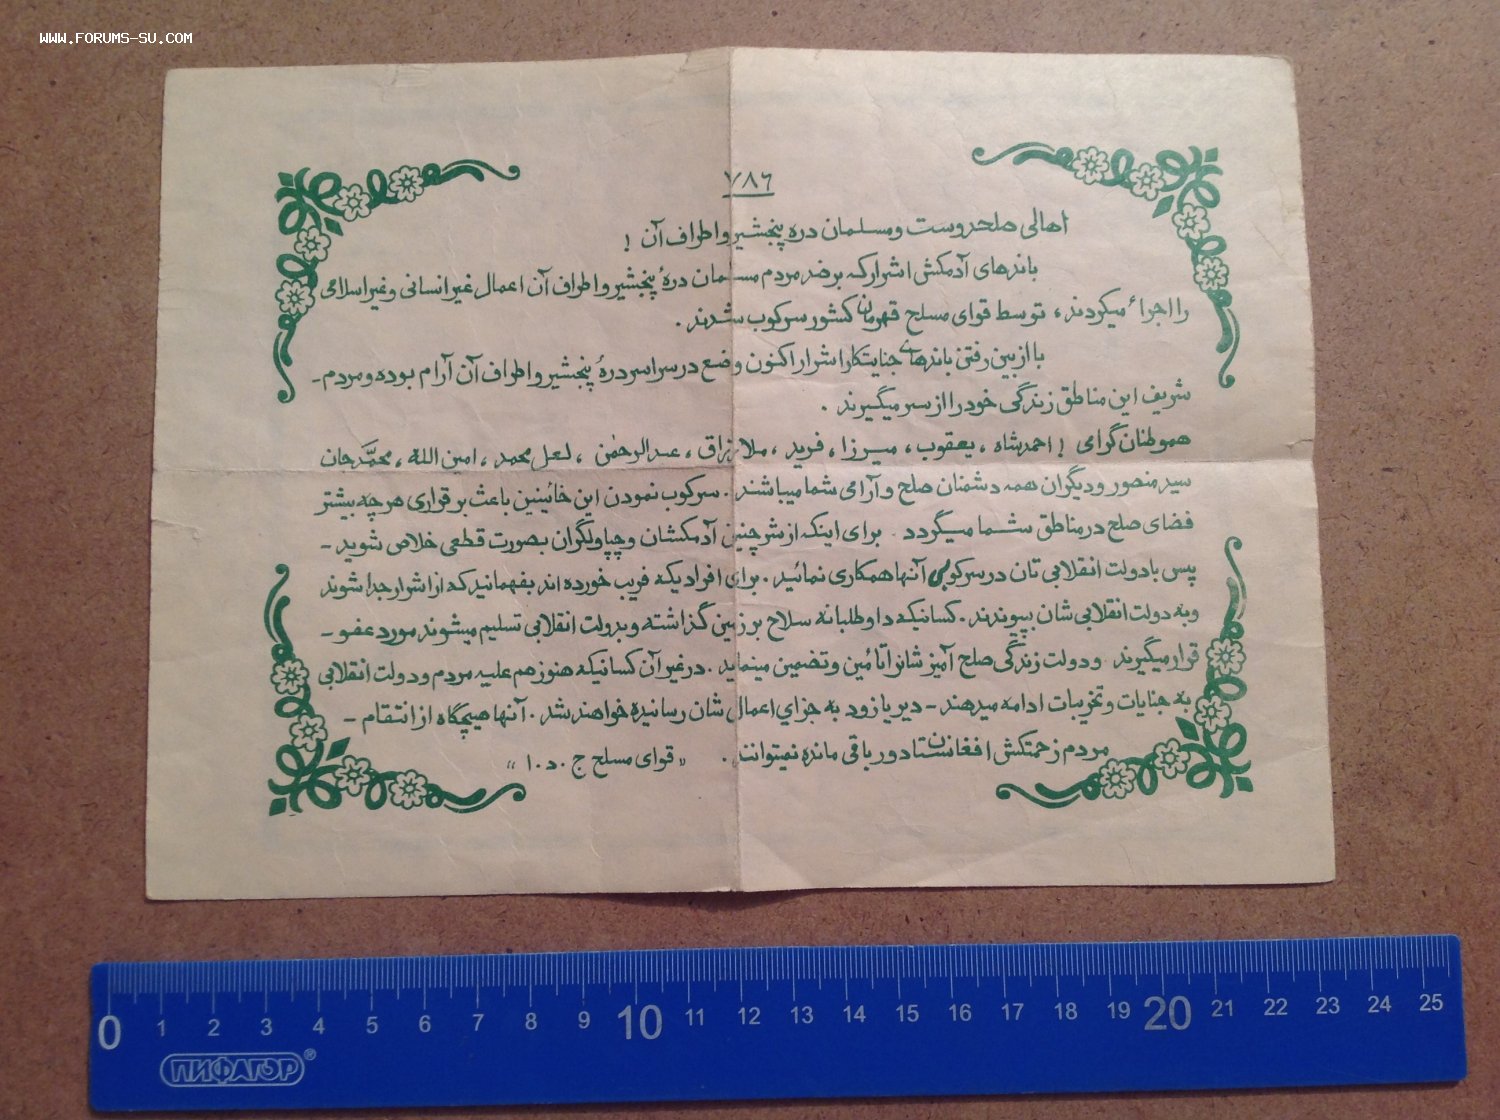 WWW.FORUMS-SU.COM
٧٨٦
اهالی صلحدوست و مسلمان دره پنجشیر و اطراف آن !
باندهای آدمکش اشرار که بر ضد مردم مسلمان درهٔ پنجشیر و اطراف آن اعمال غیر انسانی و غیر اسلامی
را اجراء میکردند ، توسط قوای مسلح قهرمان کشور سرکوب شدند .
با از بین رفتن باندهای جنایتکار اشرار اکنون وضع در سراسر درهٔ پنجشیر و اطراف آن آرام بوده و مردم -
شریف این مناطق زندگی خود را از سر میگیرند .
هموطنان گرامی ! احمدشاه ، یعقوب ، میرزا ، فرید ، ملا رزاق ، عبدالرحمٰن ، لعل محمد ، امین الله ، محمَّد جان
سید منصور و دیگران همه دشمنان صلح و آرامی شما میباشند . سرکوب نمودن این خائینین باعث برقراری هر چه بیشتر
فضای صلح در مناطق شما میگردد . برای اینکه از شر چنین آدمکشان و چپاولگران بصورت قطعی خلاص شوید -
پس با دولت انقلابی تان در سرکوبی آنها همکاری نمائید . برای افرادیکه فریب خورده اند بفهمانید که از اشرار جدا شوند
و به دولت انقلابی شان بپیوندند . کسانیکه داوطلبانه سلاح بر زمین گذاشته و بدولت انقلابی تسلیم میشوند مورد عفو -
قرار میگیرند و دولت زندگی صلح آمیز شانرا تائمین و تضمین مینماید . در غیر آن کسانیکه هنوز هم علیه مردم و دولت انقلابی
به جنایات و تخریبات ادامه میدهند - دیر یا زود به جزای اعمال شان رسانیده خواهند شد . آنها هیچگاه از انتقام -
مردم زحمتکش افغانستان دور باقی مانده نمیتوانند . « قوای مسلح ج . د . ا »
0 1 2 3 4 5 6 7 8 9 10 11 12 13 14 15 16 17 18 19 20 21 22 23 24 25
ПИФАГОР®